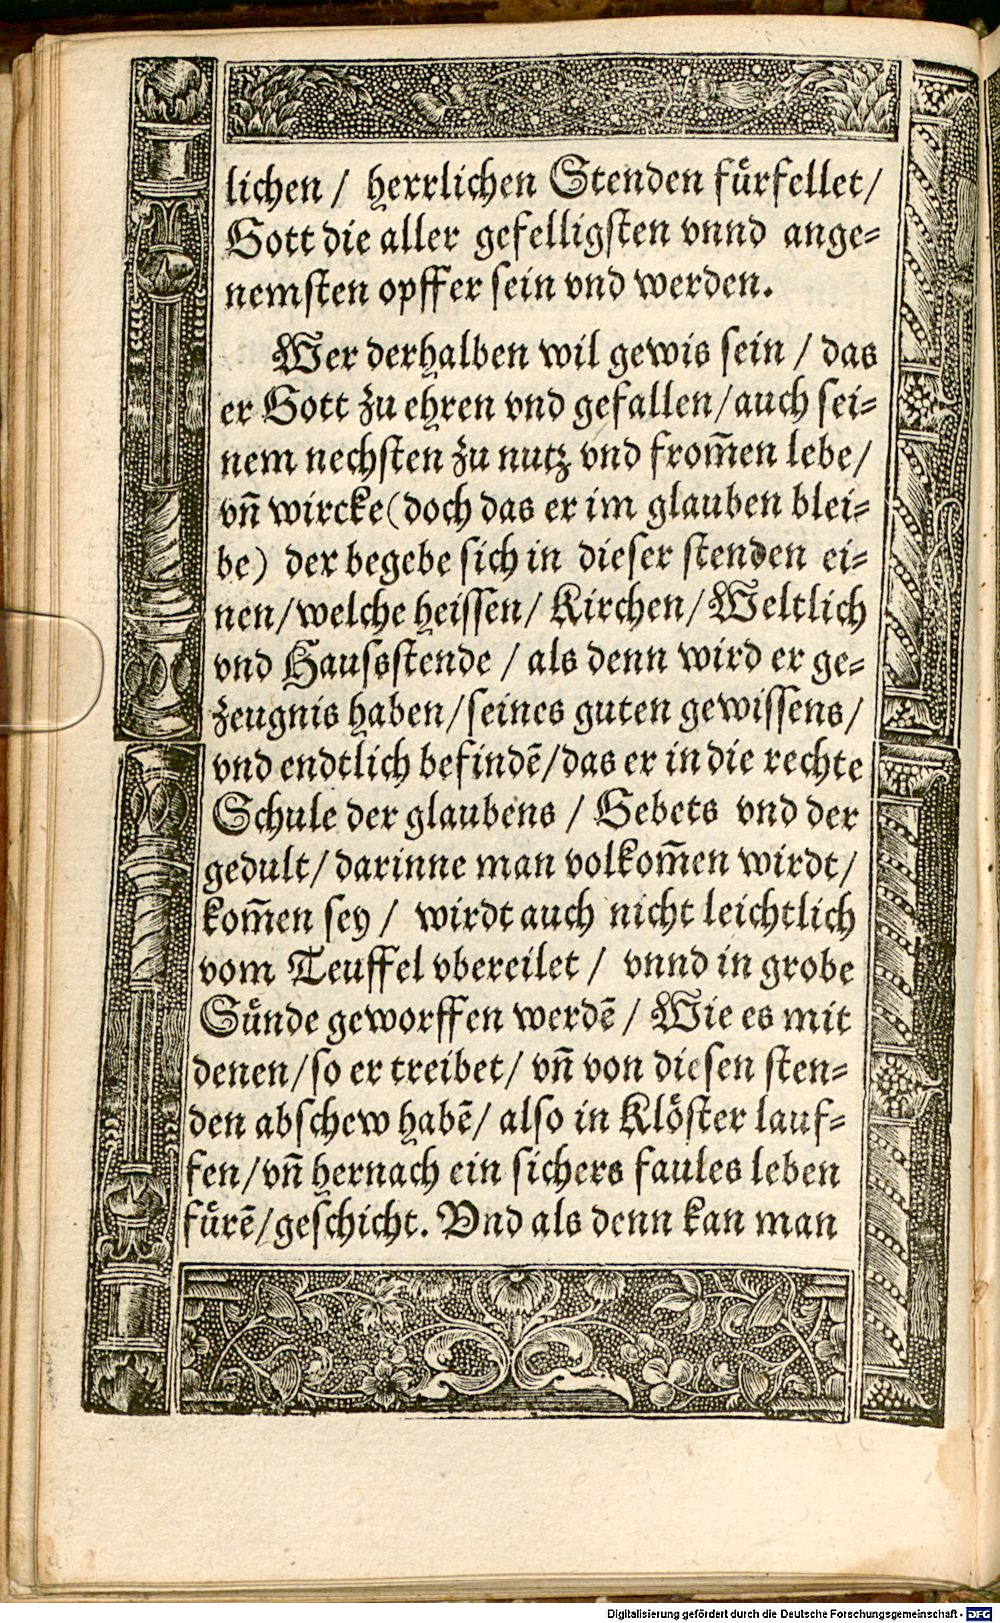 lichen / herrlichen Stenden fuͤrfellet /
Gott die aller gefelligsten vnnd ange⸗
nemsten opffer sein vnd werden.
Wer derhalben wil gewis sein / das
er Gott zu ehren vnd gefallen / auch sei⸗
nem nechsten zu nutz vnd from̄en lebe /
vn̄ wircke (doch das er im glauben blei⸗
be) der begebe sich in dieser stenden ei⸗
nen / welche heissen / Kirchen / Weltlich
vnd Hausstende / als denn wird er ge⸗
zeugnis haben / seines guten gewissens /
vnd endtlich befindē / das er in die rechte
Schule der glaubens / Gebets vnd der
gedult / darinne man volkom̄en wirdt /
kom̄en sey / wirdt auch nicht leichtlich
vom Teuffel vbereilet / vnnd in grobe
Suͤnde geworffen werdē / Wie es mit
denen / so er treibet / vn̄ von diesen sten⸗
den abschew habē / also in Kloͤster lauf⸗
fen / vn̄ hernach ein sichers faules leben
fuͤrē / geschicht. Vnd als denn kan man
Digitalisierung gefördert durch die Deutsche Forschungsgemeinschaft - DFG